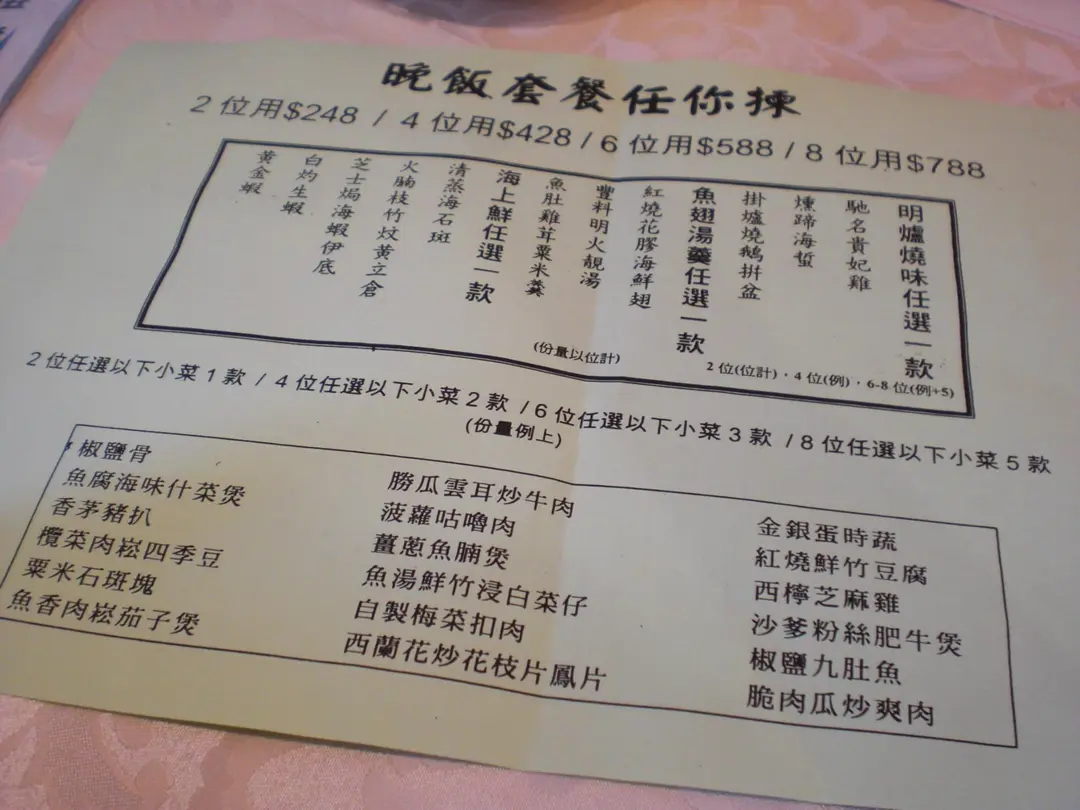 晚飯套餐任你揀
2位用$248 / 4位用$428 / 6位用$588 / 8位用$788
明爐燒味任選一款
馳名貴妃雞
燻蹄海蜇
掛爐燒鵝拼盆
魚翅湯羹任選一款
紅燒花膠海鮮翅
豐料明火靚湯
魚肚雞茸粟米羹
海上鮮任選一款
清蒸海石斑
火腩枝竹炆黃立倉
芝士焗海蝦伊底
白灼生蝦
黃金蝦
(份量以位計)
2位(位計),4位(例),6-8位(例+5)
2位任選以下小菜1款 / 4位任選以下小菜2款 / 6位任選以下小菜3款 / 8位任選以下小菜5款
(份量例上)
椒鹽骨
魚腐海味什菜煲
香茅豬扒
欖菜肉崧四季豆
粟米石斑塊
魚香肉崧茄子煲
勝瓜雲耳炒牛肉
菠蘿咕嚕肉
薑蔥魚腩煲
魚湯鮮竹浸白菜仔
自製梅菜扣肉
西蘭花炒花枝片鳳片
金銀蛋時蔬
紅燒鮮竹豆腐
西檸芝麻雞
沙爹粉絲肥牛煲
椒鹽九肚魚
脆肉瓜炒爽肉